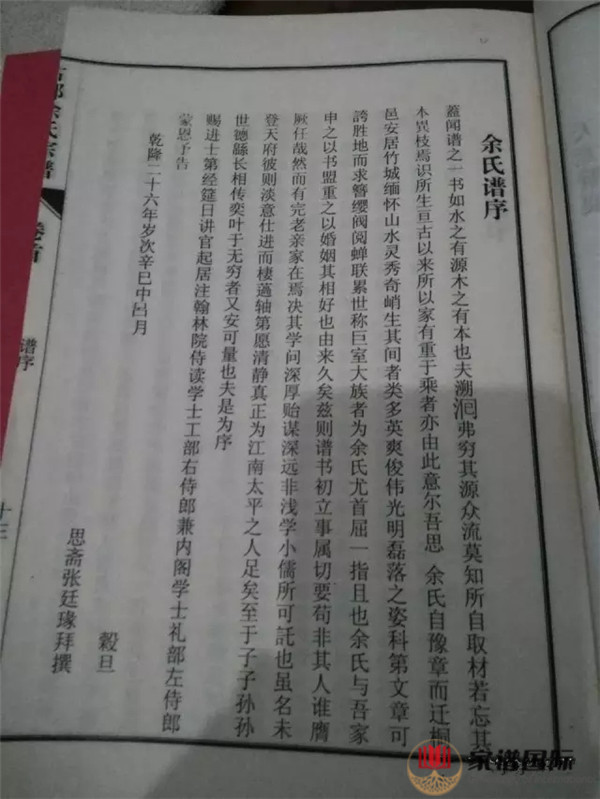 余氏谱序
蓋闻谱之一书如水之有源木之有本也夫溯洄弗穷其源众流莫知所自取材若忘其
本異枝焉识所生亘古以来所以家有重于乘者亦由此意尔吾思 余氏自豫章而迁桐
邑安居竹城缅怀山水灵秀奇峭生其间者类多英爽俊伟光明磊落之姿科第文章可
誇胜地而求簪缨阀阅蝉联累世称巨室大族者为余氏尤首屈一指且也余氏与吾家
申之以书盟重之以婚姻其相好也由来久矣兹则谱书初立事属切要苟非其人谁膺
厥任哉然而有完老亲家在焉决其学问深厚贻谋深远非浅学小儒所可託也虽名未
登天府彼则淡意仕进而棲薖轴第愿清静真正为江南太平之人足矣至于子子孙孙
世德緜长相传奕叶于无穷者又安可量也夫是为序
赐进士第经筵日讲官起居注翰林院侍读学士工部右侍郎兼内阁学士礼部左侍郎
蒙恩予告
乾隆二十六年岁次辛巳中吕月
榖旦
思斋张廷瑑拜撰
余氏宗谱
卷首
谱序
十三
家谱国际